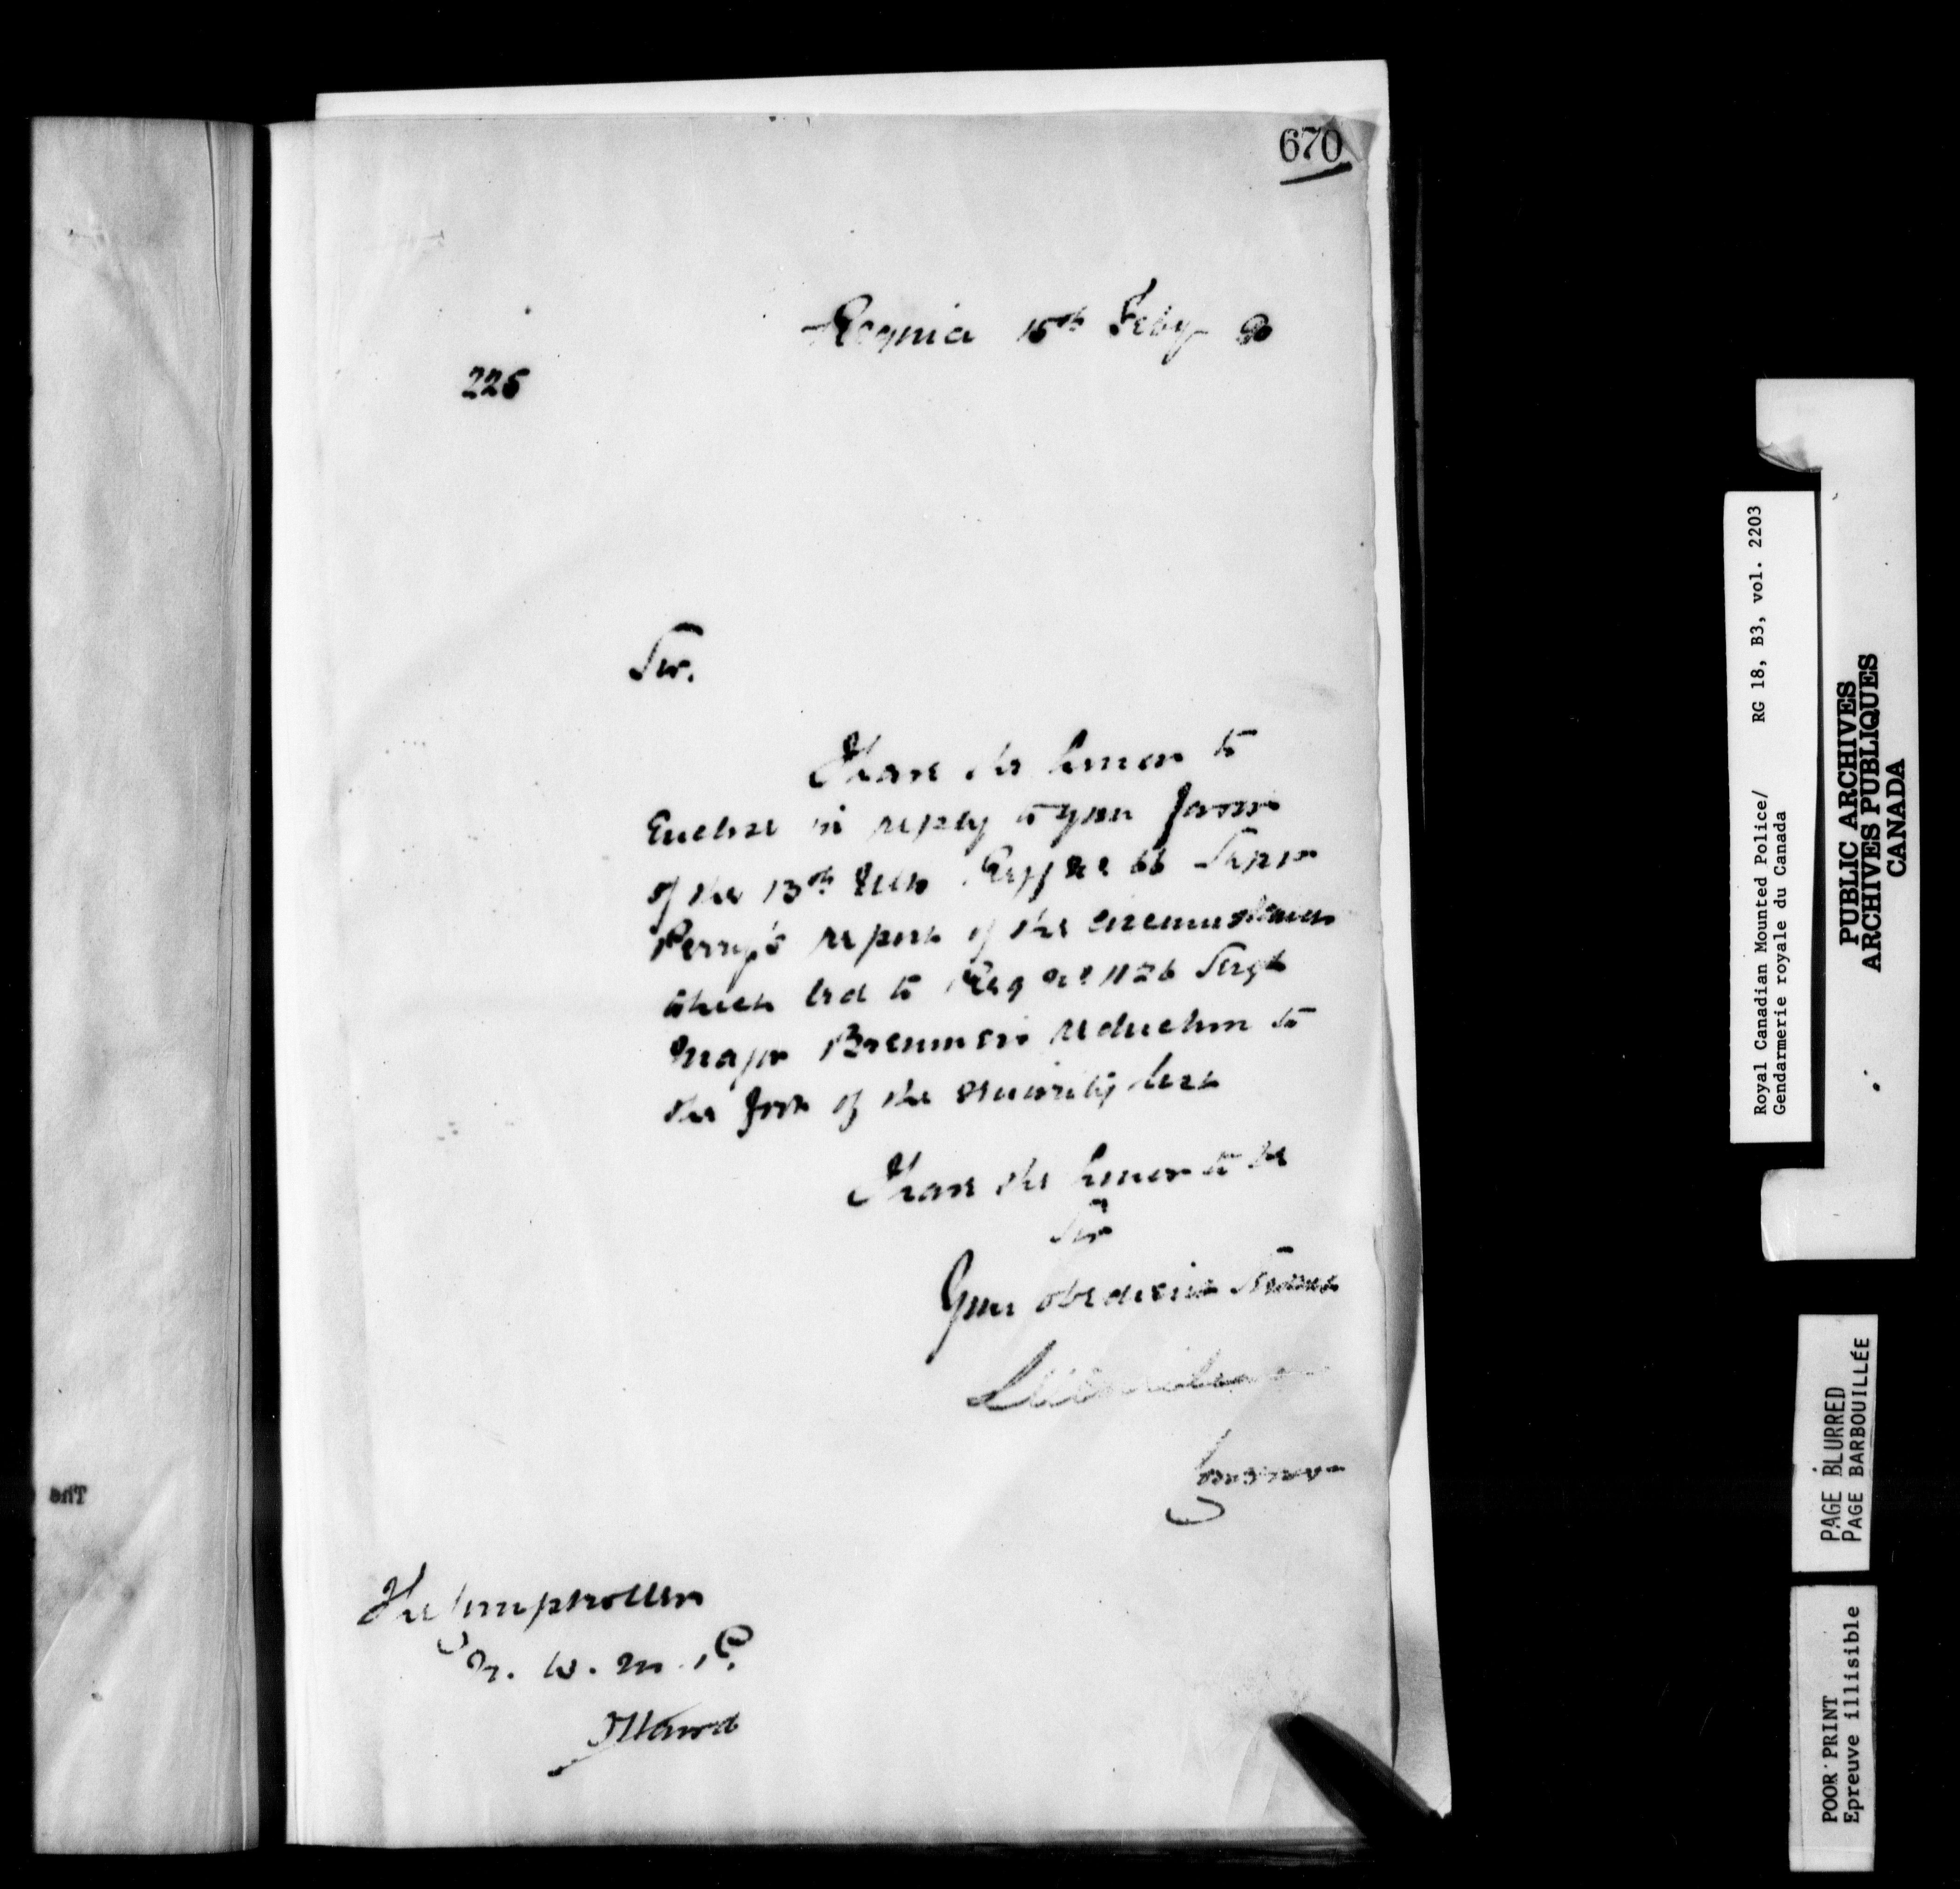 670
Regina 15th Feby 90
225
Sir.
I have the honor to
Enclose in reply to your favor
of the 13th Ulto Supt
Perry's report of the circumstances
which led to Reg No 1126 Sergt
Major reduction to
the foot of the seniority list
I have the honor to be
Sir
Your obedient Servant
Commr
The Comptroller
N. W. M. P.
Ottawa
The
Royal Canadian Mounted Police/ RG 18, B3, vol. 2203
Gendarmerie royale du Canada
PUBLIC ARCHIVES
ARCHIVES PUBLIQUES
CANADA
PAGE BLURRED
PAGE BARBOUILLÉE
POOR PRINT
Epreuve illisible